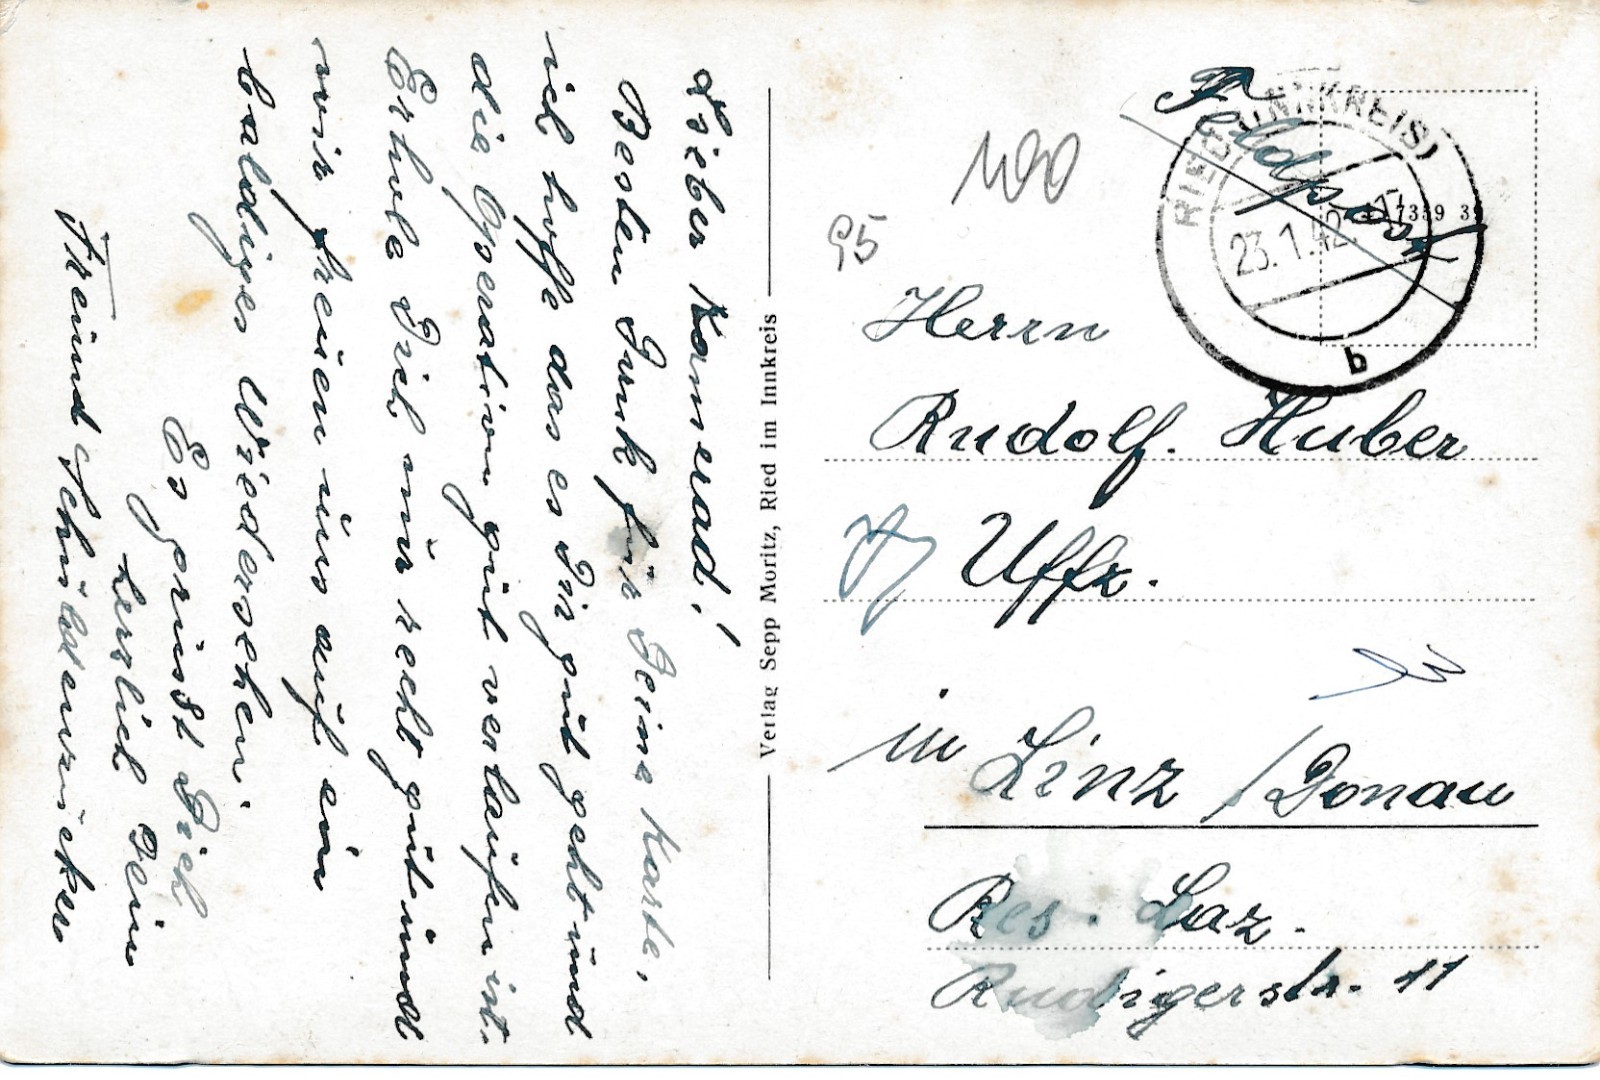 Lieber Kamerad!
Besten Dank für Deine Karte,
ich hoffe das es Dir gut geht und
die Operation gut verlaufen ist.
Erhole Dich nur recht gut und
wir freuen uns auf ein
baldiges Wiedersehen!
Es grüsst Dich
herzlich Dein
Freund
Verlag Sepp Moritz, Ried im Innkreis
Feldpost
RIED (INNKREIS)
23.1.42
b
7339 39
100
95
Herrn
Rudolf. Huber
Uffz.
in Linz /Donau
Res. Laz.
Rudigerstr. 11